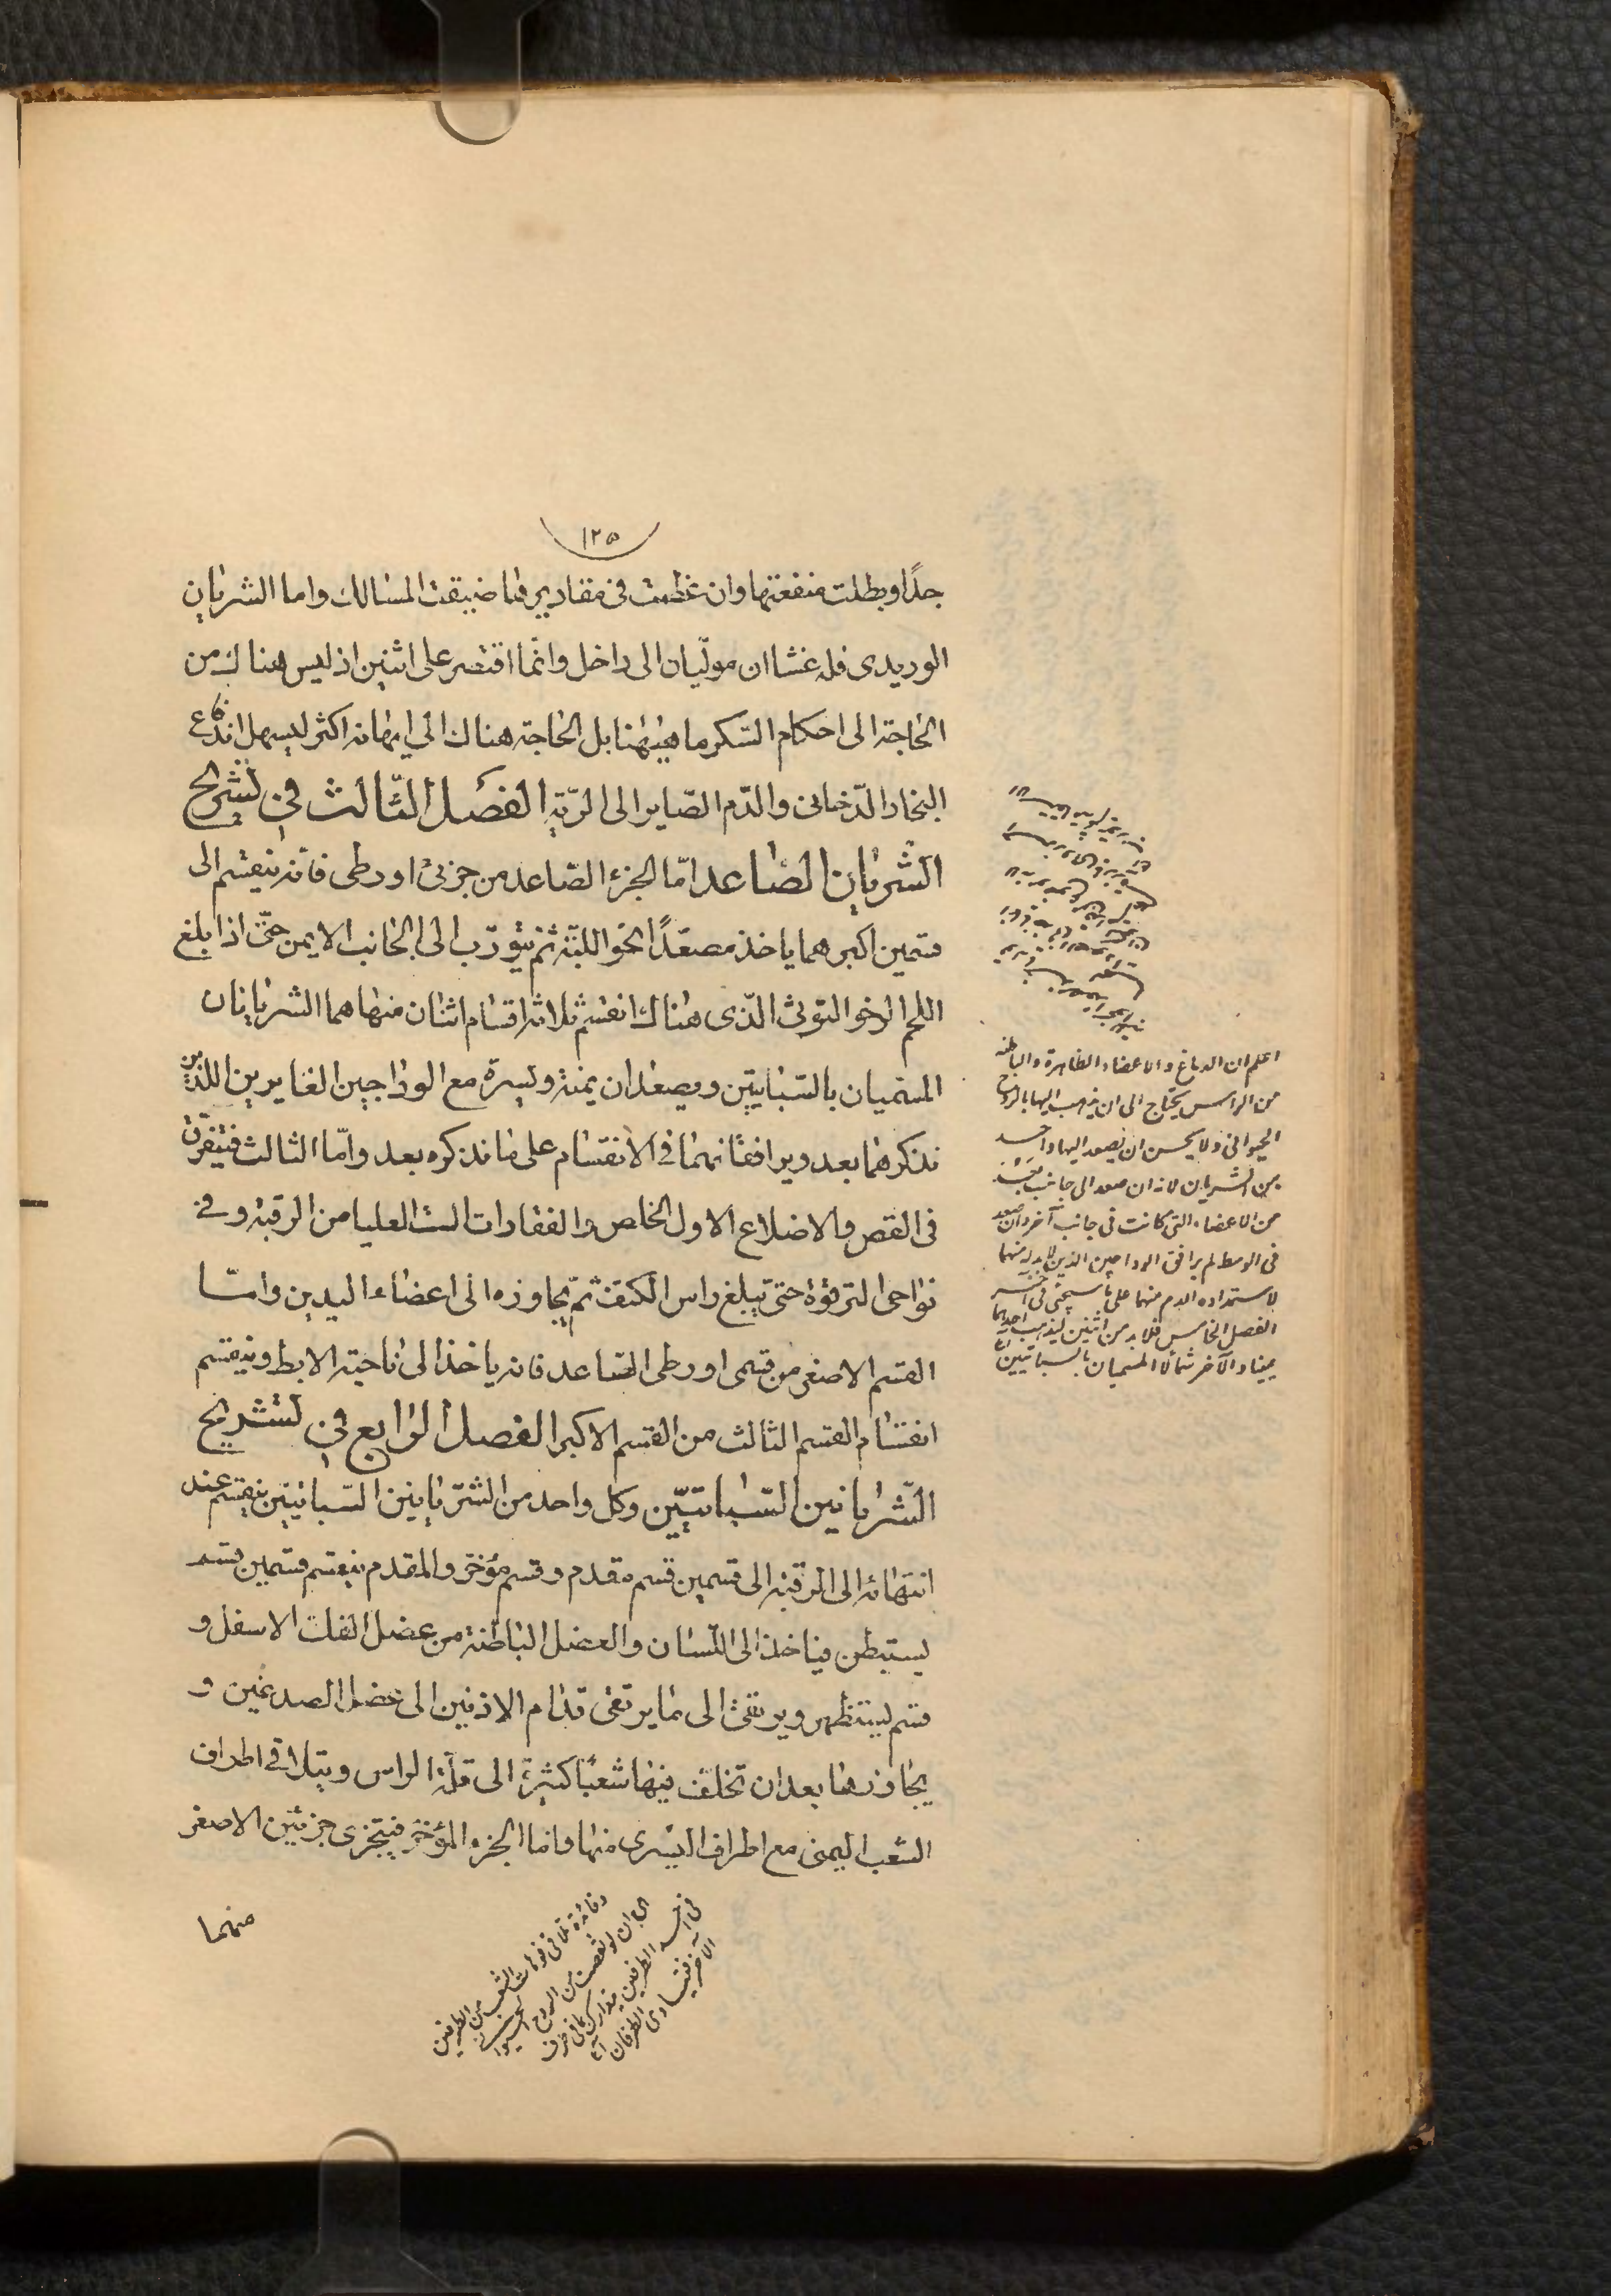 ١٢٥
جدًا وبطلت منفعتها وان عظمت فى مقاديرها ضيقت المسالك واما الشريان
الوريدى فله غشاان مولّيان الى داخل وانما اقتصر على اثنين اذ ليس هناك من
الحاجة الى احكام السكر ما هيٰهنا بل الحاجة هناك الى ايهانه اكثر ليسهل اندفاع
البخار الدّخانى والدّم الصّاير الى الرّية الفصل الثالث فى تشريح
الشريان الصاعد امّا الجزء الصّاعد من جزئى اورطى فانه ينقسم الى
قسمين اكبرهما ياخذ مصعّدًا نحو اللبّة ثم يتورّب الى الجانب الايمن حتّى اذا بلغ
اللحم الرخو التوثى الذى هناك انقسم ثلاثة اقسام اثنان منها هما الشريانان
المسميان بالسّباتيّين ويصعدان يمنة ويسرة مع الوداجين الغايرين اللذين
نذكرهما بعد ويرافقانهما فى الانقسام على ما نذكره بعد وامّا الثالث فيتفرّق
فى القص والاضلاع الاول الخاص والفقارات الست العليا من الرقبة وفى
نواحى الترقوة حتى تبلغ راس الكتف ثمّ يجاوزه الى اعضاء اليدين وامّا
القسم الاصغر من قسمى اورطى الصّاعد فانه ياخذ الى ناحية الابط وينقسم
انقسام القسم الثالث من القسم الاكبر الفصل الرابع فى تشريح
الشريانين السّباتيّين وكل واحد من الشريانين السّباتيين ينقسم عند
انتهائه الى الرقبة الى قسمين قسم مقدم وقسم مؤخر والمقدم ينقسم قسمين قسم
يستبطن فياخذ الى اللسان والعضل الباطنة من عضل الفك الاسفل و
قسم يستظهر ويرتقى الى ما يرتقى قدّام الاذنين الى عضل الصدغين و
يجاوزها بعد ان تخلف فيها شعبًا كثيرة الى قلّة الراس ويتلاقى اطراف
الشعب اليمنى مع اطراف اليسرى منها واما الجزء المؤخر فيتجزى جزئين الاصغر
منهما
اعلم ان الدماغ والاعضاء الظاهرة والباطنه
من الراس يحتاج الى ان يذهب اليها بالروح
الحيوانى ولا يحسن ان يصعد اليها واحد
من الشريان لانه ان صعد الى جانب بعد
من الاعضاء التى كانت فى جانب آخر وان صعد
فى الوسط لم يرافق الوداجين الذين لابد له منهما
لاستمداده الدم منهما على ما سيجئ فى آخر
الفصل الخامس فلابد من اثنين ليذهب احدهما
يمينا والآخر شمالا المسميان بالسباتيين
وفائدة تلاقى فوهات الشعب من الطرفين
ان لو نقصت من الروح الحيوانى
فى احد الطرفين يتدارك مافى طرف
الآخر فيتساوى الطرفان